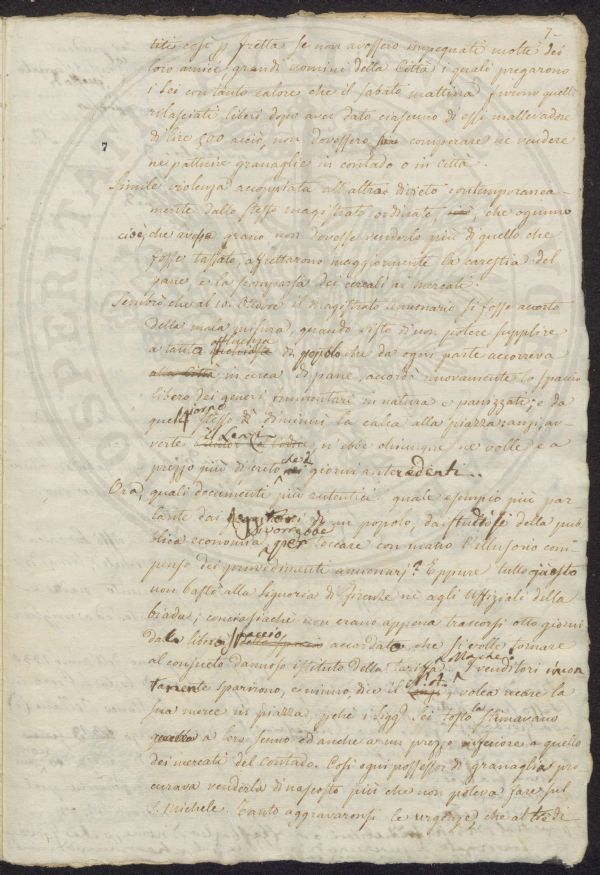 7
titi così p fretta se non avessero impegnati molti dei
loro amici grandi uomini della Città i quali pregarono
i Sei con tanto calore che il sabato mattina furono quelli
rilasciati liberi dopo aver dato ciascuno di essi mallevadore
di lire 500 acciò non dovessero comperare ne vendere
7
ne pattuire granaglie in contado o in Città.
Simile violenza accoppiata all'altro divieto contemporanea-
mente dallo stesso magistrato ordinato, che ognuno
cioè, che avesse grano non dovesse venderlo più di quello che
fosse tassato, affrettarono maggiormente la carestia del
pane e la scomparsa dei cereali ai mercati.
Sembrò che al Ottobre il magistrato annonario si fosse accorto
della mala misura, quando visto di non potere supplire
affluenza
a tanta di popolo che da ogni parte accorreva
alla Città in cerca di pane, accordò nuovamente lo spaccio
libero dei generi frumentari in natura e panizzati; e da
giorno
quel stesso dì diminuì la calca alla piazza; anzi, av-
il Lenzi
verte n'ebbe chiunque ne volle e a
dei
prezzo più discreto giorni antecedenti.
Ora, quali documenti più autentici, quale esempio più par-
lante dai di un popolo, dai studiosi della pub-
vorrebbe
blica economia per toccare con mano l'illusorio com-
penso dei provvedimenti annonarj? Eppure tutto questo
non bastò alla Signoria di Firenze nè agli Uffiziali della
biada; conciosiachè non erano appena trascorsi otto giorni
spaccio
dal libero accordato, che si volle tornare
al consueto dannoso istituto della tariffa. I venditori imman-
tanente sparirono, e niuno, dice il volea recare la
sua merce in piazza, perchè i Sigg. Sei tosto la stimavano
quella a loro senno ed anche a un prezzo inferiore a quello
dei mercati del contado. Così ogni possessor di granaglia pro
curava venderla di nascosto più che non poteva fare sul
S. Michele. Tanto aggravaronsi le urgenze, che al tredi-